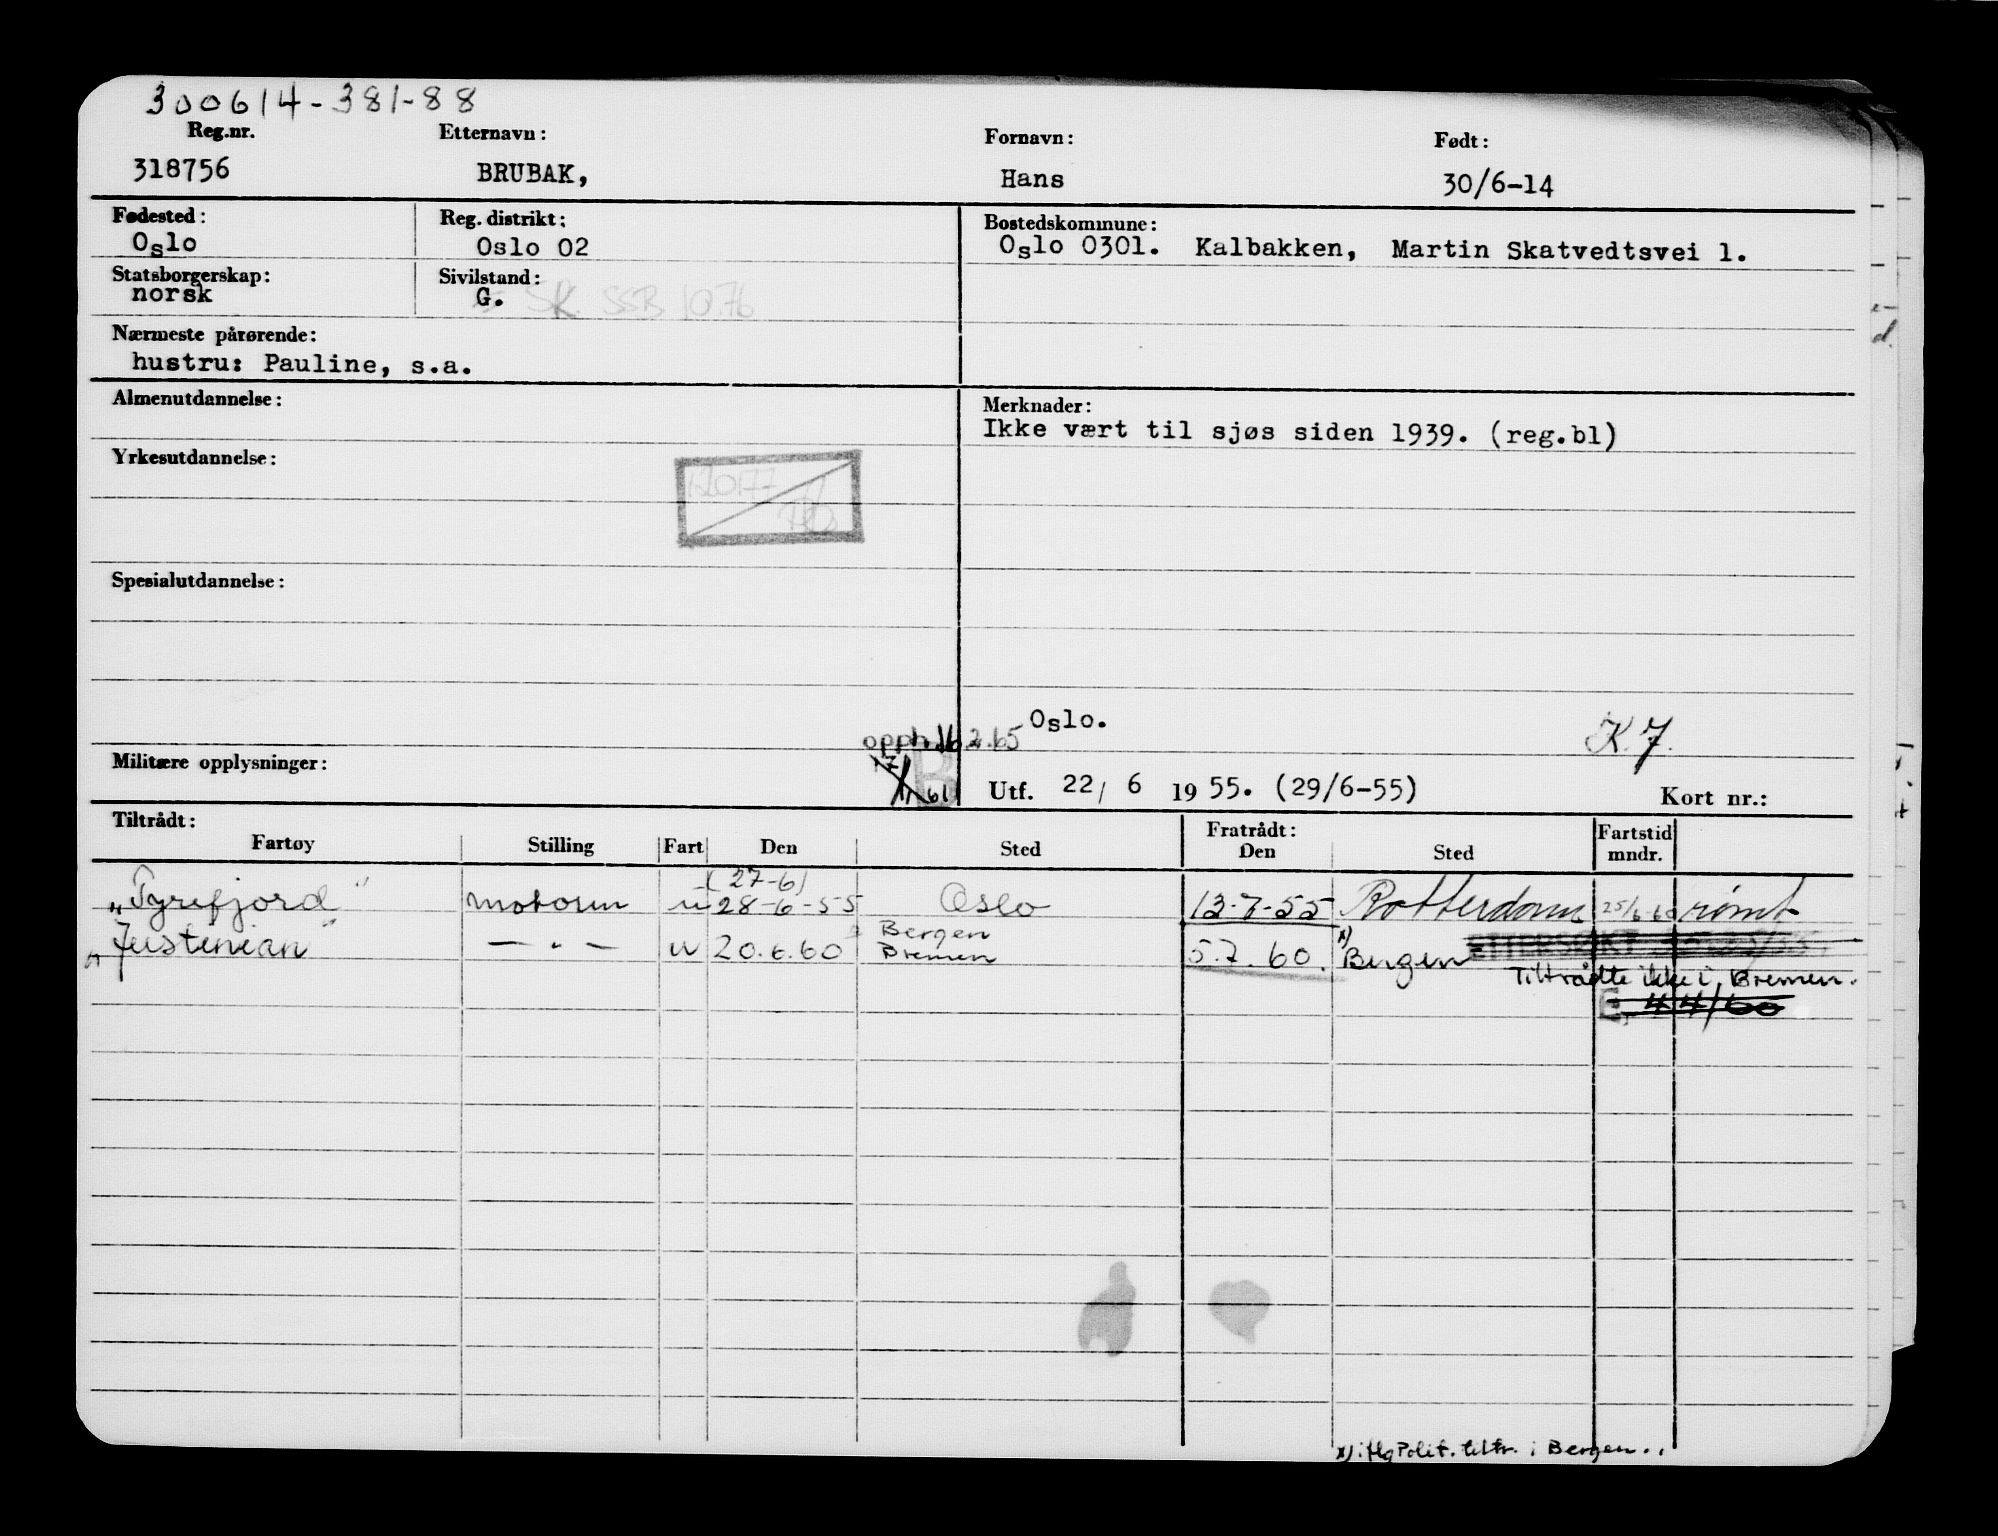 300614-381-88
Reg.nr. Etternavn: Fornavn: Født:
318756 BRUBAK, Hans 30/6-14
Fødested: Reg. distrikt: Bostedskommune:
Oslo Oslo 02 Oslo 0301. Kalbakken, Martin Skatvedtsvei 1.
Statsborgerskap: Sivilstand:
norsk G. SK SSB 10.76
Nærmeste pårørende:
hustru: Pauline, s.a.
Almenutdannelse: Merknader:
Ikke vært til sjøs siden 1939. (reg.bl)
Yrkesutdannelse:
Spesialutdannelse:
Oslo. K.7.
opph. 16.2.65
Militære opplysninger:
Utf. 22/ 6 1955. (29/6-55) Kort nr.:
Tiltrådt: Fratrådt: Fartstid
Fartøy Stilling Fart Den Sted Den Sted mndr.
(27-6)
"Tyrefjord" motorm u 28-6-55 Oslo 13-7-55 Rotterdam 25/6-60 rømt
Bergen
"Justenian" — " — u 20.6.60 Bremen 5.7.60. x) Bergen ETTERSØKT
Tiltrådte ikke i Bremen.
E. 44/60
x) iflg Polit. tiltr. i Bergen..